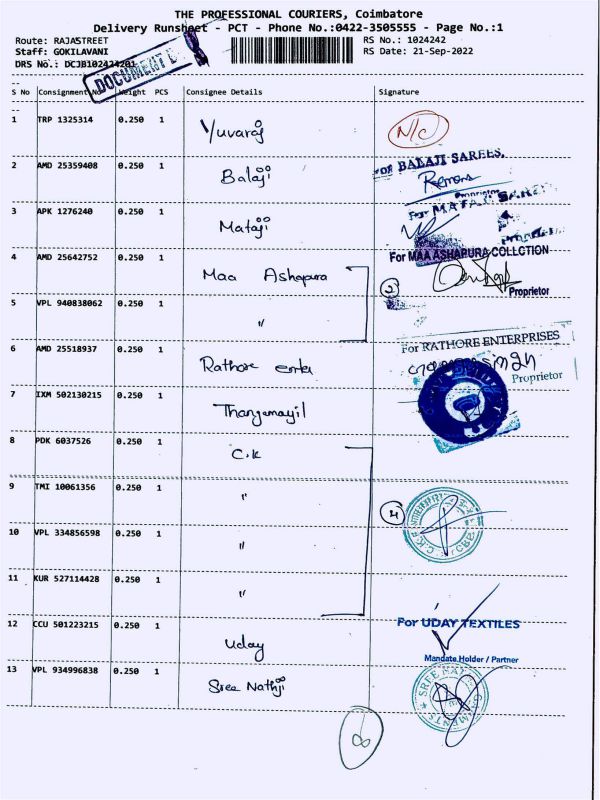 THE PROFESSIONAL COURIERS, Coimbatore
Delivery Runsheet - PCT - Phone No.:0422-3505555 - Page No.:1
Route: RAJASTREET
RS No. : 1024242
Staff: GOKILAVANI
RS Date: 21-Sep-2022
DRS No.: DCJB102424201
DOCUMENT
S No Consignment No Weight PCS Consignee Details Signature
1 TRP 1325314 0.250 1 Yuvaraj N/C
2 AMD 25359408 0.250 1 Balaji
For BALAJI SAREES,
Proprietor
3 APK 1276240 0.250 1 Mataji
For MATAJI
4 AMD 25642752 0.250 1 Maa Ashapura
For MAA ASHAPURA COLLCTION
2
Proprietor
5 VPL 940838062 0.250 1 "
6 AMD 25518937 0.250 1 Rathore
For RATHORE ENTERPRISES
Proprietor
7 IXM 502130215 0.250 1 Thangamayil
8 PDK 6037526 0.250 1 C.K
9 TMI 10061356 0.250 1 "
4
10 VPL 334856598 0.250 1 "
11 KUR 527114428 0.250 1 "
12 CCU 501223215 0.250 1 Uday
For UDAY TEXTILES
Mandate Holder / Partner
13 VPL 934996838 0.250 1 Sree Nathji
8